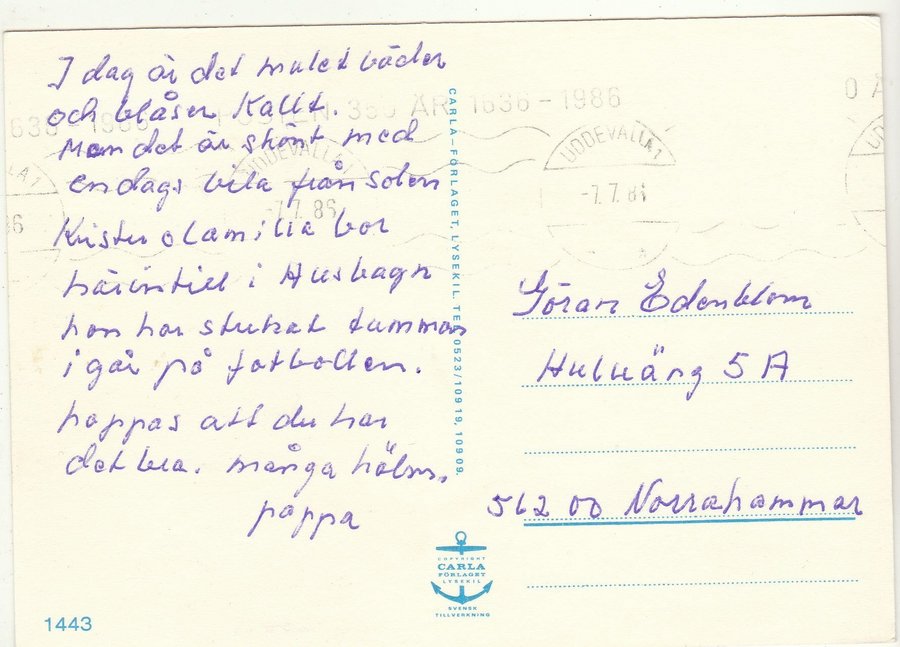 I dag är det mulet väder
och blåser Kallt.
Men det är skönt med
en dags vila från solen
Krister o Camilla bor
härintill i Husvagn
han har stukat tumman
i går på fotbollen.
hoppas att du har
det bra. många häls.
pappa
CARLA-FÖRLAGET, LYSEKIL TEL 0523/109 19, 109 09.
POSTEN 350 ÅR 1636-1986
UDDEVALLA 1
-7.7.86
UDDEVALLA 1
-7.7.86
Göran Edenblom
Huluäng 5 A
562 00 Norrahammar
COPYRIGHT
CARLA
FÖRLAGET
LYSEKIL
SVENSK
TILLVERKNING
1443